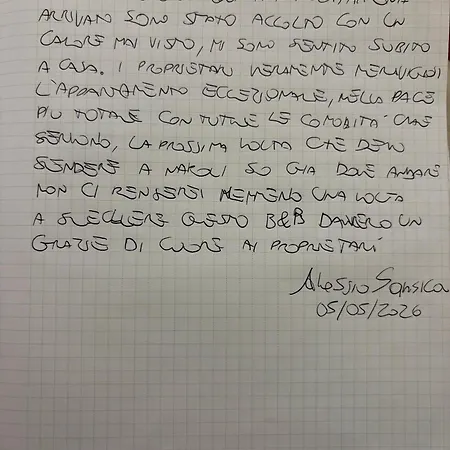 ARRIVATI SONO STATO ACCOLTO CON UN
CALORE MAI VISTO, MI SONO SENTITO SUBITO
A CASA. I PROPRIETARI VERAMENTE MERAVIGLIOSI
L'APPARTAMENTO ECCEZIONALE, NELLA PACE
PIU TOTALE CON TUTTE LE COMODITA' CHE
SERVONO, LA PROSSIMA VOLTA CHE DEVO
SCENDERE A NAPOLI SO GIA DOVE ANDARE
NON CI PENSEREI NEMMENO UNA VOLTA
A SCEGLIERE QUESTO B&B DAVVERO UN
GRAZIE DI CUORE AI PROPRIETARI
Alessio Sansica
05/05/2026